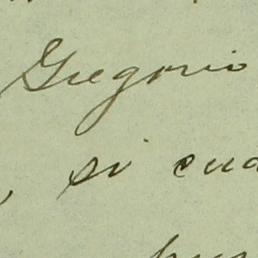 Gregorio
, si cua